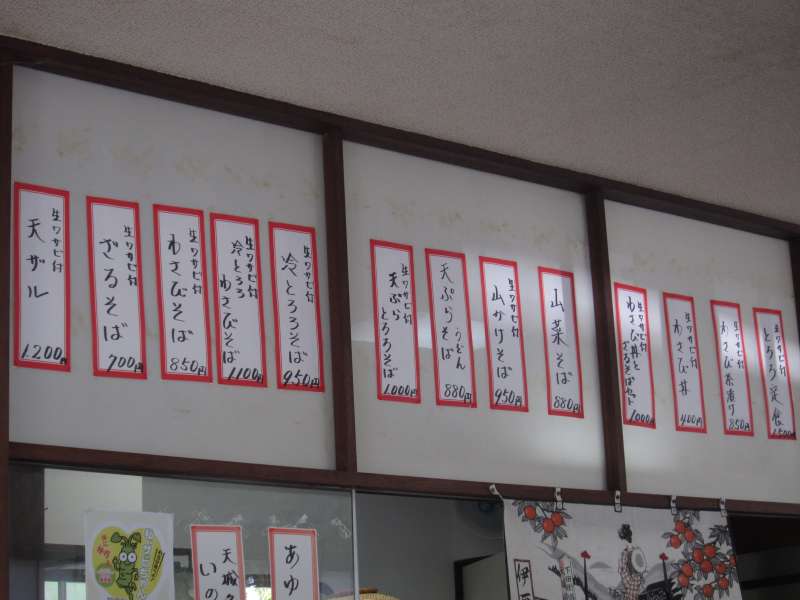 生ワサビ付
天ザル
1200円
生ワサビ付
ざるそば
700円
生ワサビ付
わさびそば
850円
生ワサビ付
冷とろろ
生ワサビ付
わさびそば
1100円
生ワサビ付
冷とろろそば
950円
生ワサビ付
天ぷら
とろろそば
1.000円
天ぷら
うどん
そば
880円
生ワサビ付
山かけそば
950円
山菜そば
880円
生ワサビ付
わさび丼と
ざるそばセット
1000円
生ワサビ付
わさび丼
400円
生ワサビ付
わさび茶漬り
850円
生ワサビ付
とろろ定食
1500円
天城
いの
あゆ